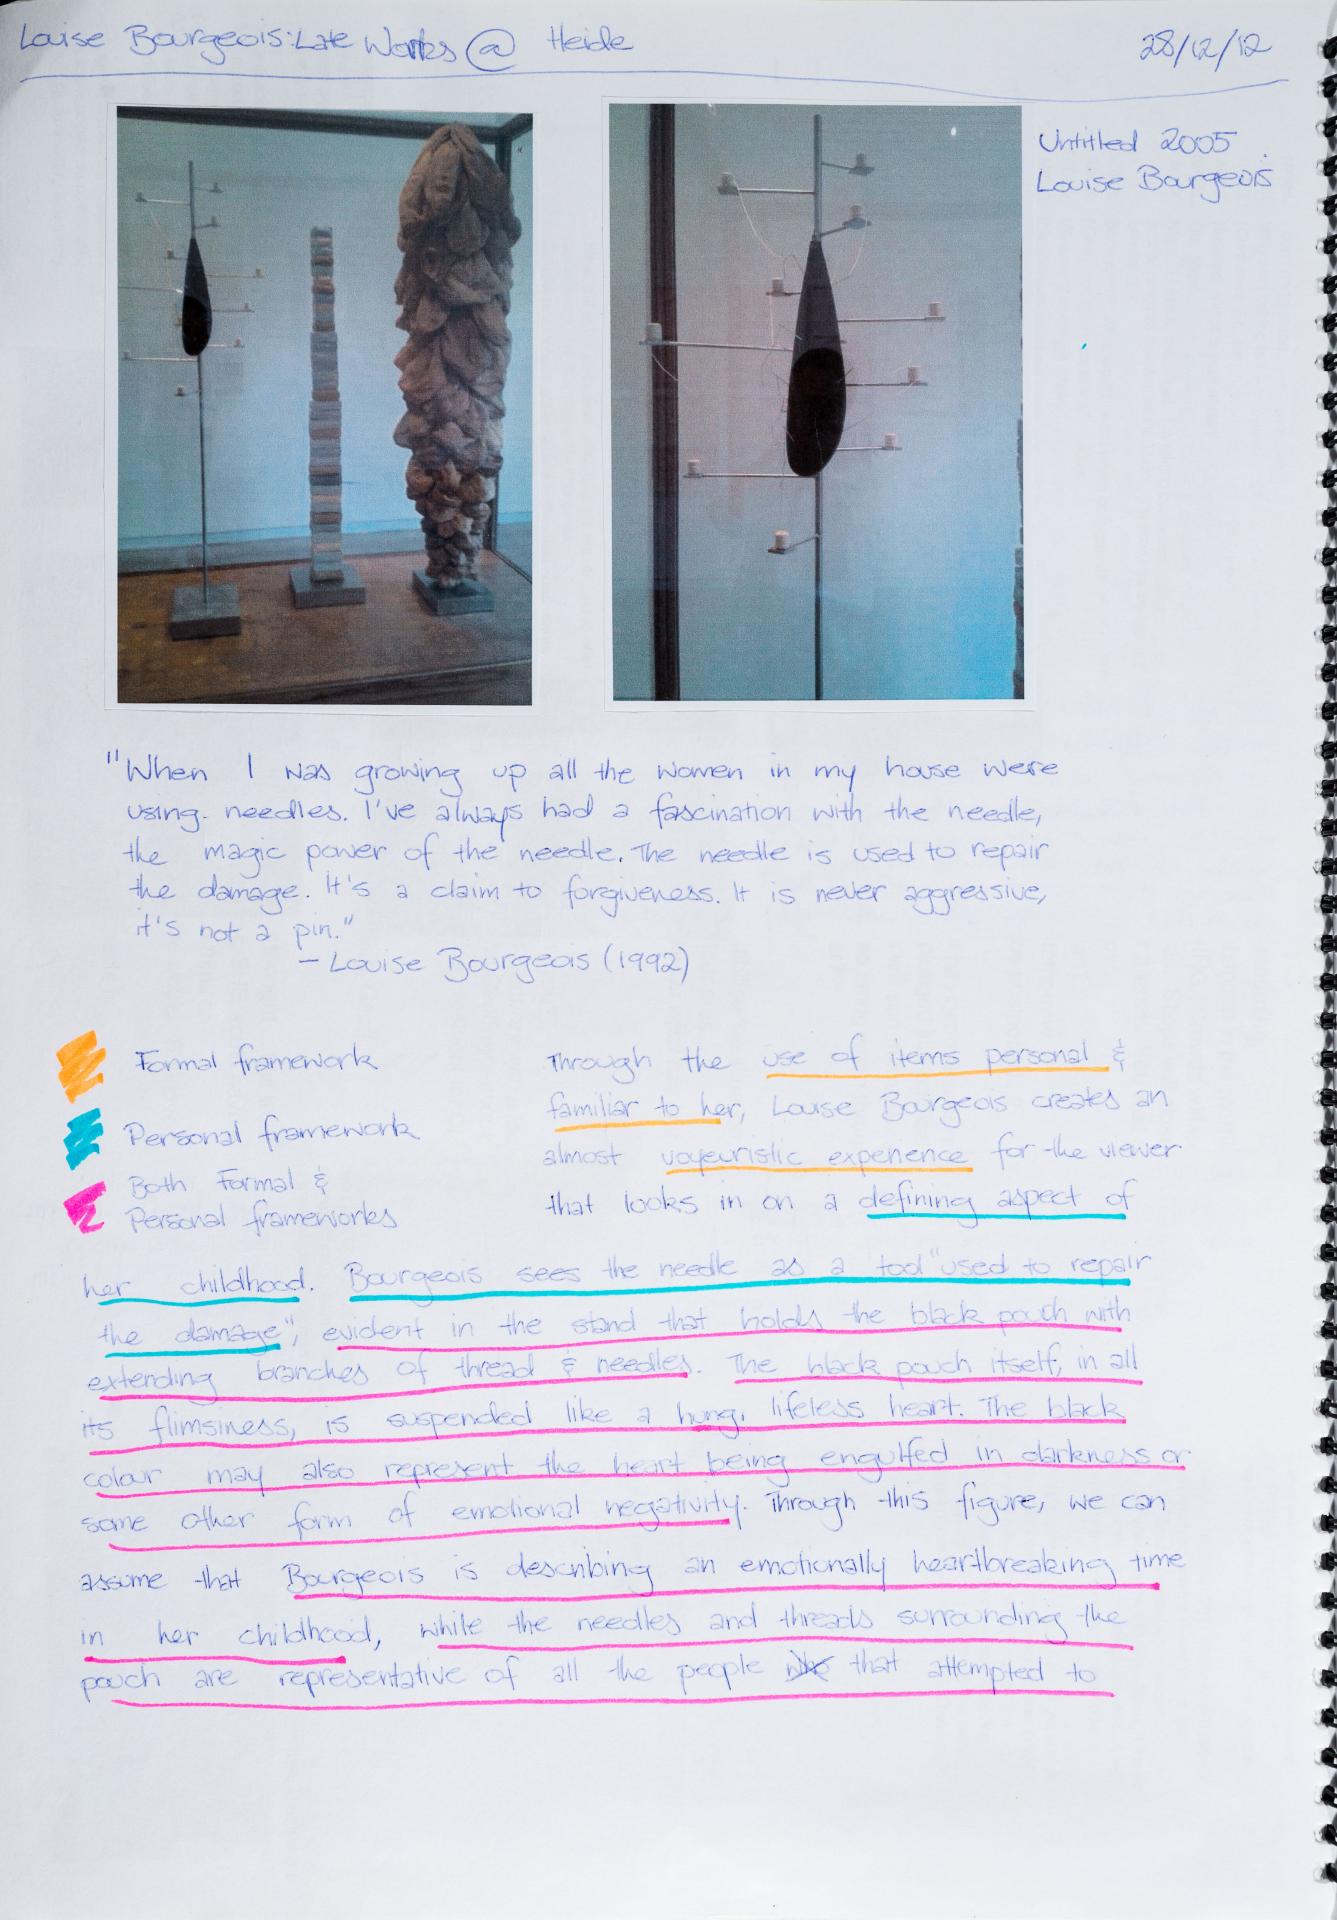 Louise Bourgeois: Late Works @ Heide 28/12/12
Untitled 2005.
Louise Bourgeois
"When I was growing up all the women in my house were
using needles. I've always had a fascination with the needle,
the magic power of the needle. The needle is used to repair
the damage. It's a claim to forgiveness. It is never aggressive,
it's not a pin."
- Louise Bourgeois (1992)
Formal framework
Personal framework
Both Formal &
Personal frameworks
Through the use of items personal &
familiar to her, Louise Bourgeois creates an
almost voyeuristic experience for the viewer
that looks in on a defining aspect of
her childhood. Bourgeois sees the needle as a tool "used to repair
the damage", evident in the stand that holds the black pouch with
extending branches of thread & needles. The black pouch itself, in all
its flimsiness, is suspended like a hung, lifeless heart. The black
colour may also represent the heart being engulfed in darkness or
some other form of emotional negativity. Through this figure, we can
assume that Bourgeois is describing an emotionally heartbreaking time
in her childhood, while the needles and threads surrounding the
pouch are representative of all the people that attempted to